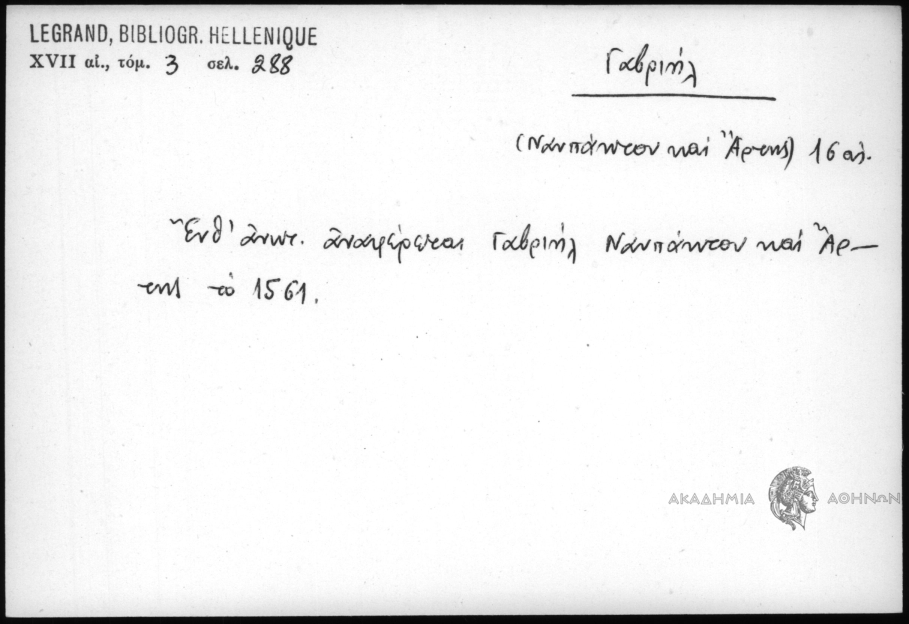 LEGRAND, BIBLIOGR. HELLENIQUE
XVII αἰ., τόμ. 3 σελ. 288
Γαβριήλ
(Ναυπάκτου καὶ Ἄρτης) 16 αἰ.
Ἔνθ' ἀνωτ. ἀναφέρεται Γαβριήλ Ναυπάκτου καὶ Ἄρ–
της τὸ 1561.
ΑΚΑΔΗΜΙΑ ΑΘΗΝΩΝ